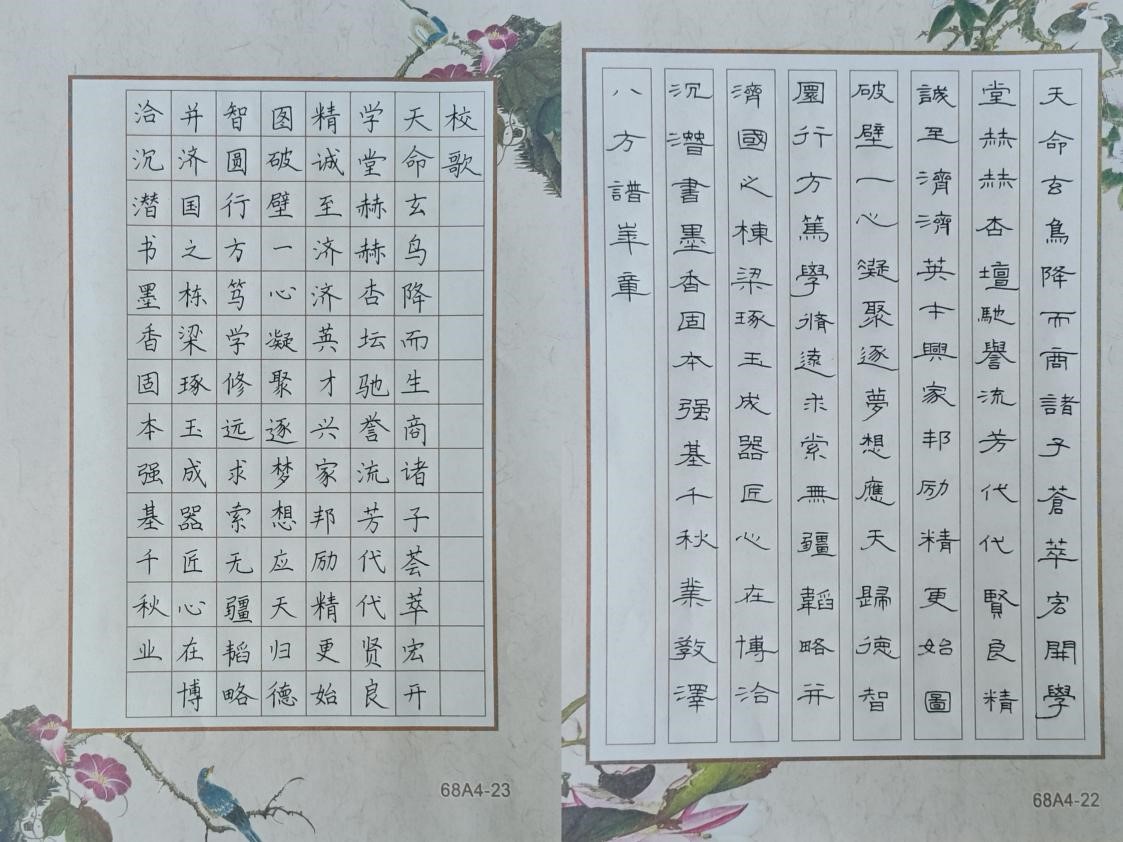 校歌
天命玄鸟降而生商诸子荟萃宏开
学堂赫赫杏坛驰誉流芳代代贤良
精诚至济济英才兴家邦励精更始
图破壁一心凝聚逐梦想应天归德
智圆行方笃学修远求索无疆韬略
并济国之栋梁琢玉成器匠心在博
洽沉潜书墨香固本强基千秋业
68A4-23
天命玄鳥降而商諸子蒼萃宏開學
堂赫赫杏壇馳譽流芳代代賢良精
誠至濟濟英才興家邦励精更始圖
破壁一心凝聚逐夢想應天歸德智
圓行方篤學脩遠求索無疆韜略并
濟國之棟梁琢玉成器匠心在博洽
沉潛書墨香固本强基千秋業教澤
八方譜華章
68A4-22